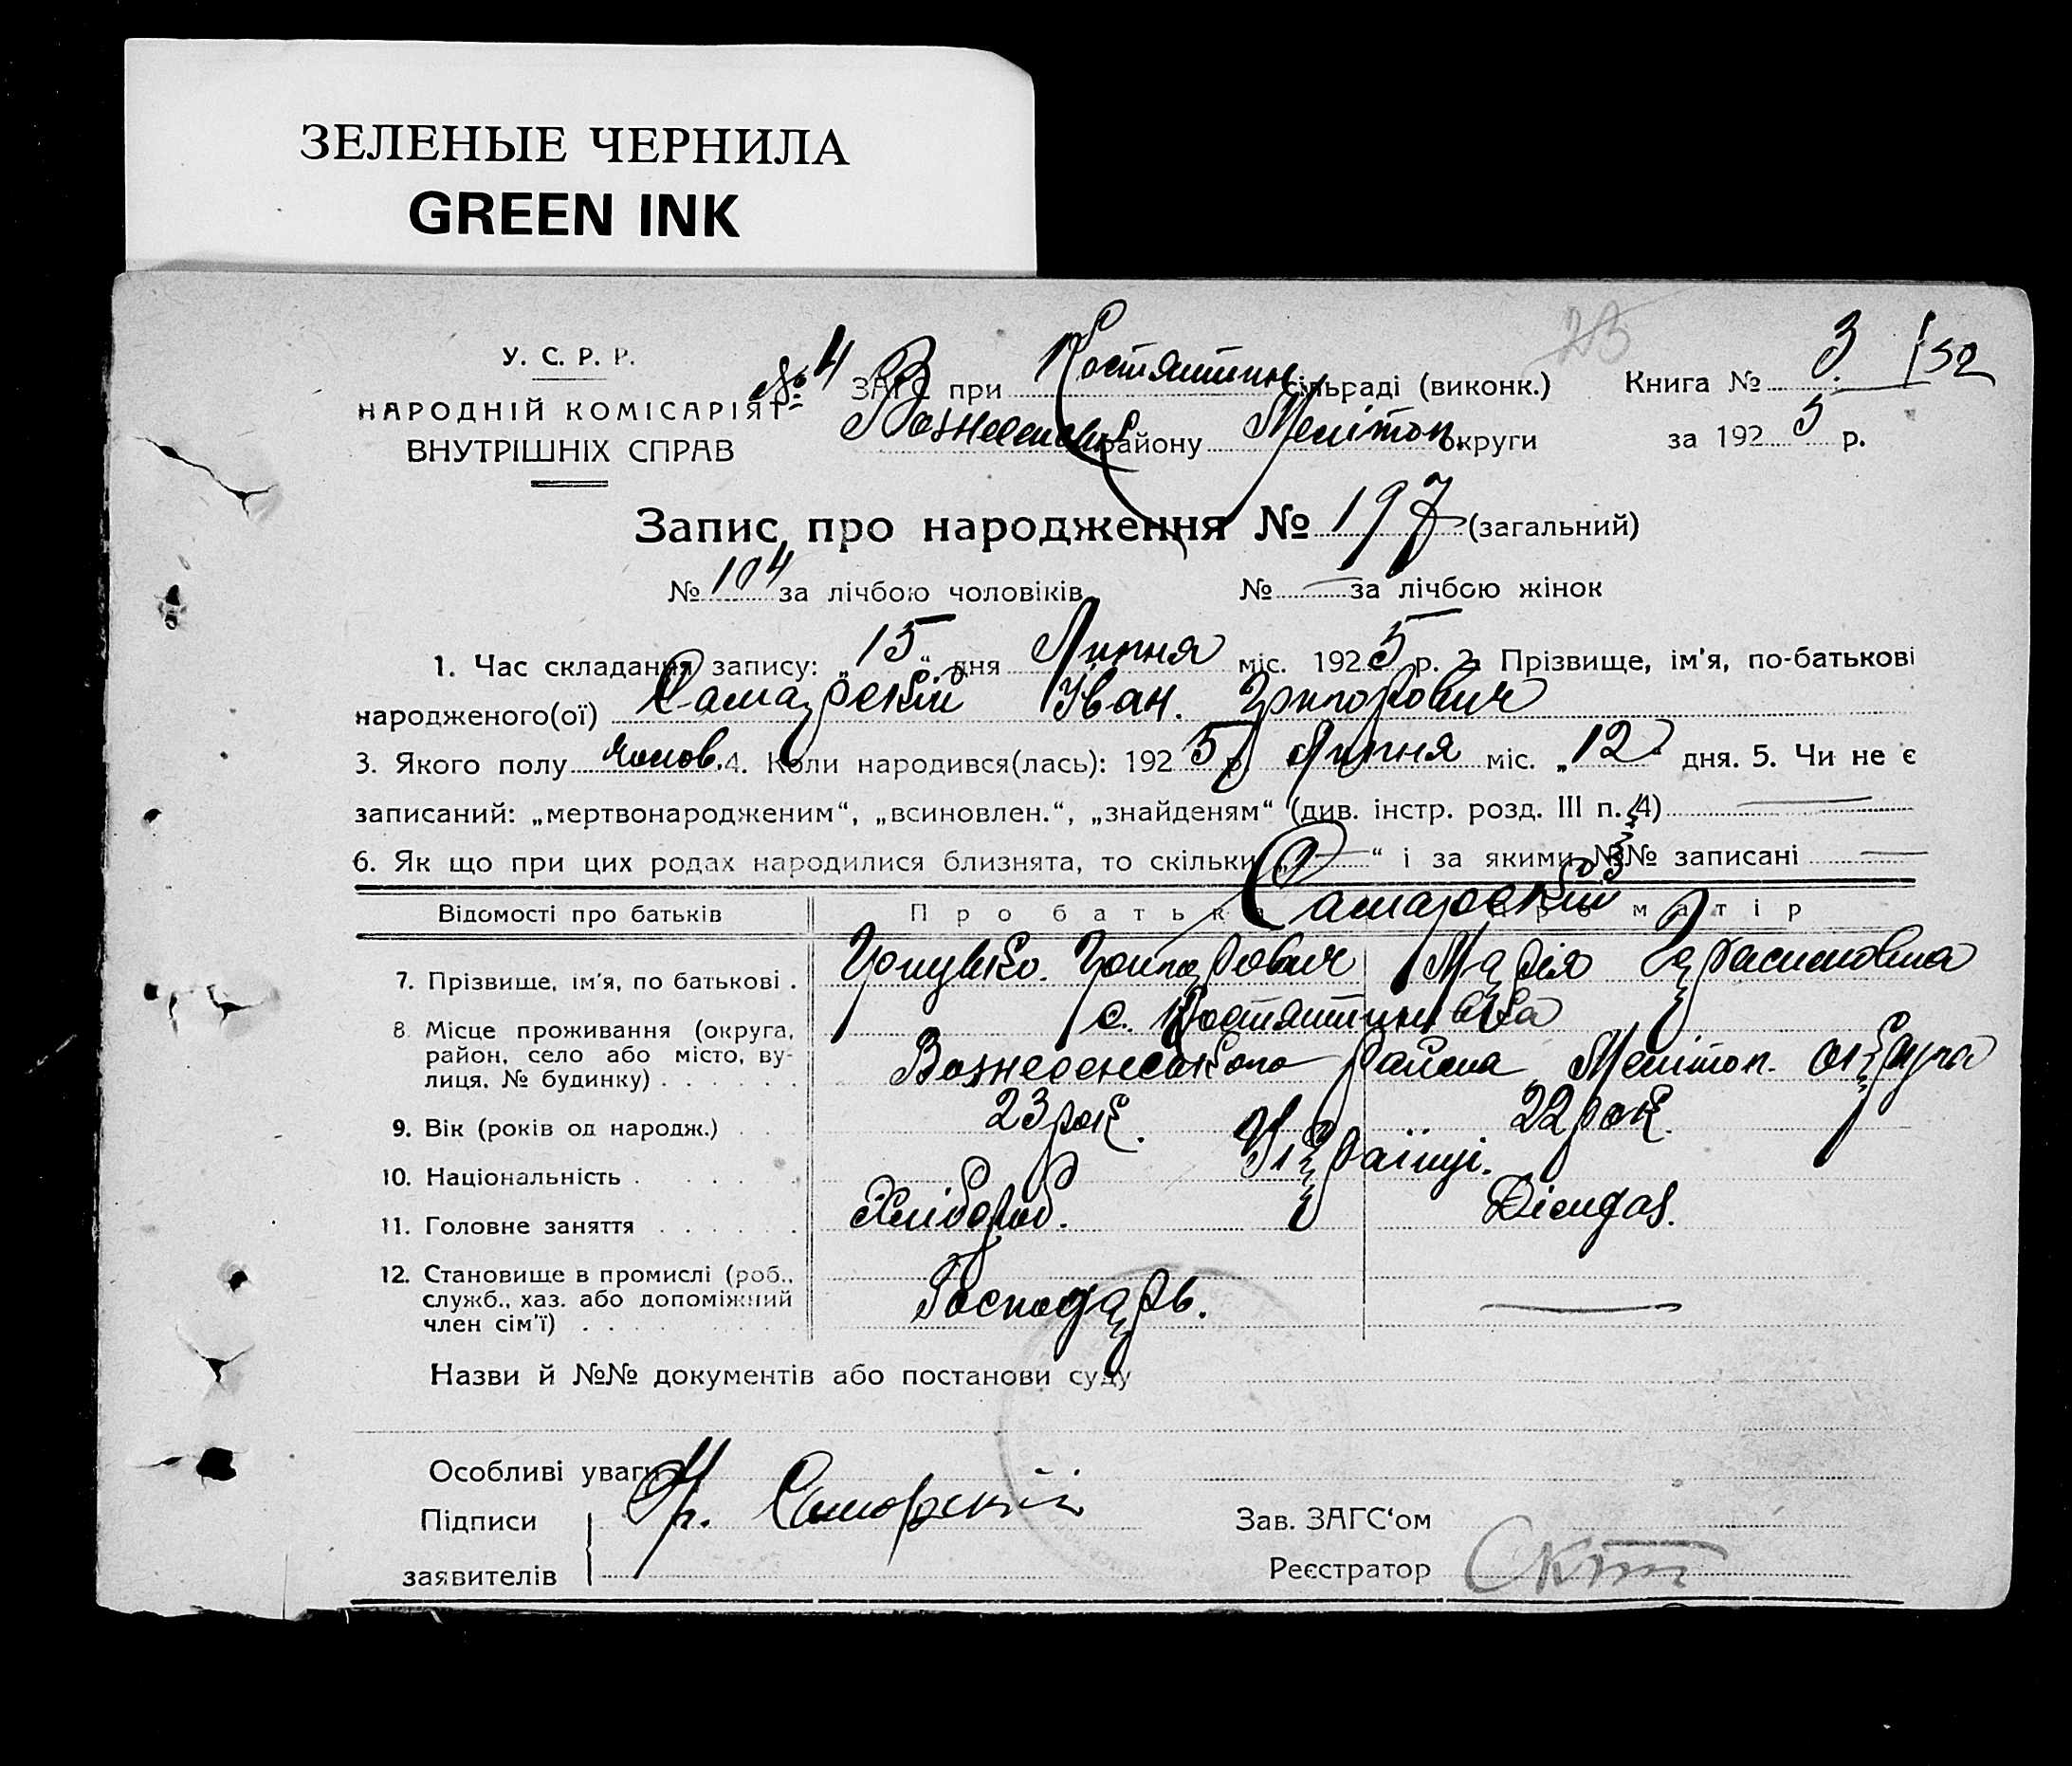 ЗЕЛЕНЫЕ ЧЕРНИЛА
GREEN INK
23
У. С. Р. Р.
НАРОДНІЙ КОМІСАРІЯТ
ВНУТРІШНІХ СПРАВ
№ 4 ЗАГС при Костянтин. сільраді (виконк.) Книга № 3 152
Вознесенськ району Мелітоп. округи за 1925 р.
Запис про народження № 197 (загальний)
№ 104 за лічбою чоловіків № — за лічбою жінок
1. Час складання запису: „15“ дня Липня міс. 1925 р. 2. Прізвище, ім'я, по-батькові
народженого(ої) Самарський Іван. Григорович
3. Якого полу чолов. 4. Коли народився(лась): 1925 р. Липня міс. „12“ дня. 5. Чи не є
записаний: „мертвонародженим“, „всиновлен.“, „знайденям“ (див. інстр. розд. III п. 4) —
6. Як що при цих родах народилися близнята, то скільки „—“ і за якими №№ записані —
Відомості про батьків Про батька Про матір
Самарські
7. Прізвище, ім'я, по батькові . Грицько. Григорович Марія Герасимовна
8. Місце проживання (округа, с. Костянтинівка
район, село або місто, ву- Вознесенського району Мелітоп. округа
лиця, № будинку) . . . . . .
9. Вік (років од народж.) . . 23 рок. 22 рок.
10. Національність . . . . . Українці.
11. Головне заняття . . . . . . Хлібороб. Діємдаг.
12. Становище в промислі (роб.,
служб., хаз. або допоміжний Господарь. —
член сім'ї) . . . . . . .
Назви й №№ документів або постанови суду
Особливі уваги
Підписи Гр. Самарский Зав. ЗАГС'ом
заявителів Реєстратор